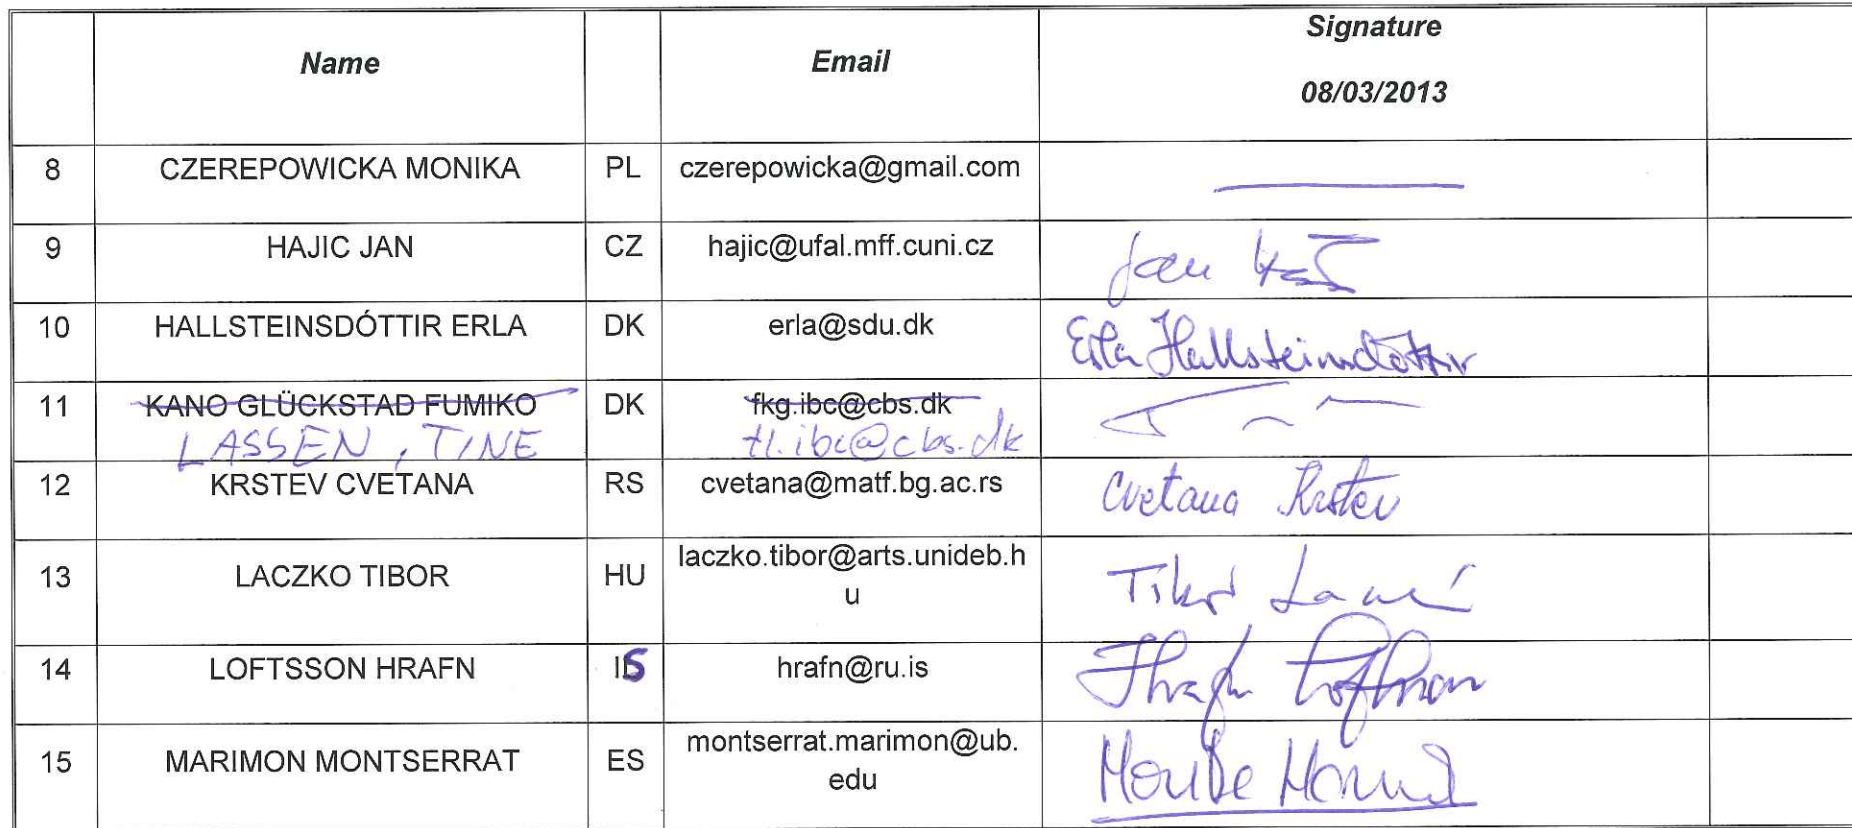 Name Email Signature
08/03/2013
8 CZEREPOWICKA MONIKA PL czerepowicka@gmail.com
9 HAJIC JAN CZ hajic@ufal.mff.cuni.cz Jan
10 HALLSTEINSDÓTTIR ERLA DK erla@sdu.dk Erla Hallsteinsdóttir
11 KANO GLÜCKSTAD FUMIKO DK fkg.ibc@cbs.dk
LASSEN, TINE tl.ibc@cbs.dk
12 KRSTEV CVETANA RS cvetana@matf.bg.ac.rs Cvetana Krstev
13 LACZKO TIBOR HU laczko.tibor@arts.unideb.h
u Tibor
14 LOFTSSON HRAFN IS hrafn@ru.is Hrafn Loftsson
15 MARIMON MONTSERRAT ES montserrat.marimon@ub.
edu